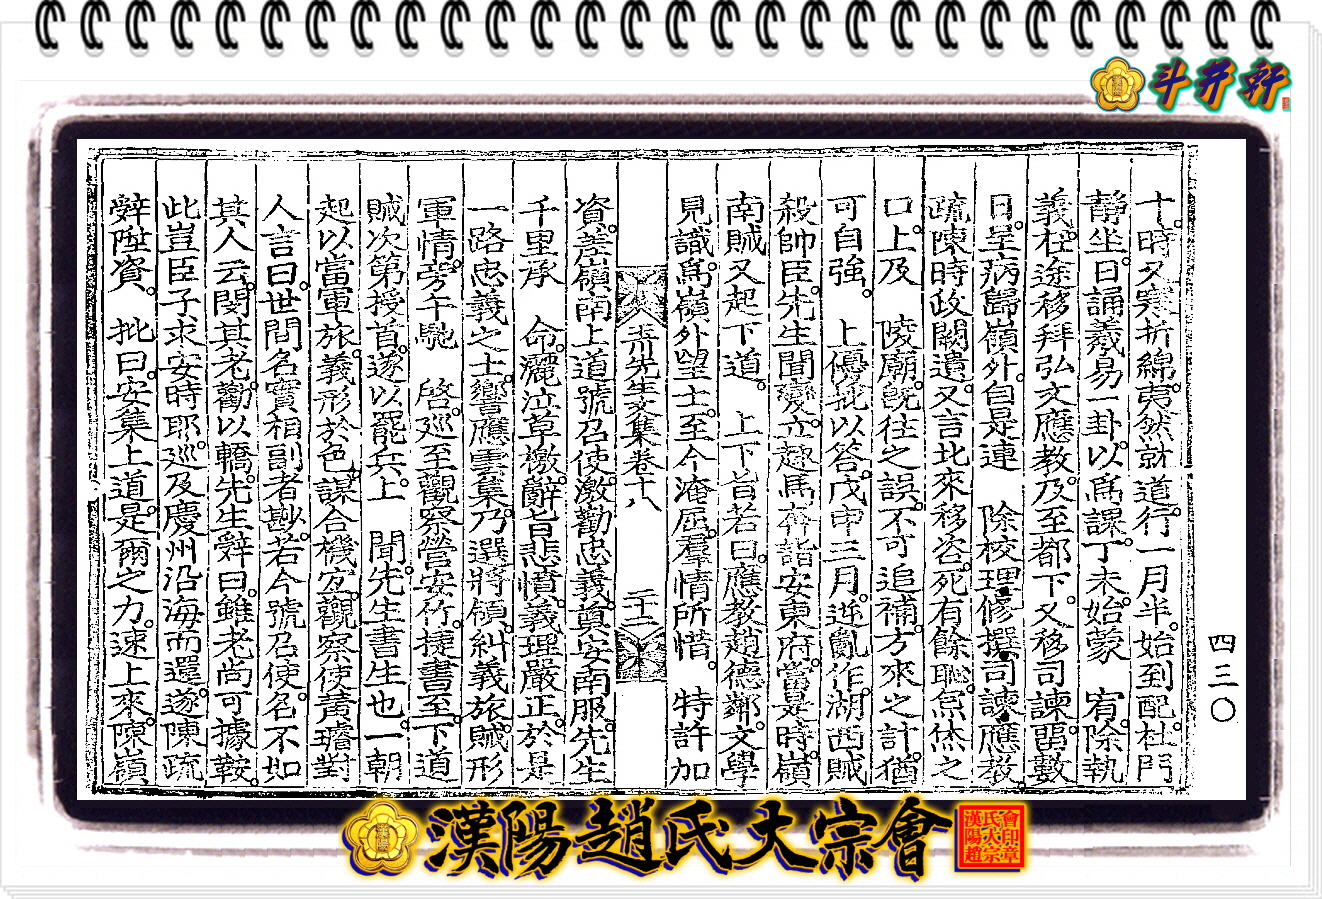 斗井軒
四三〇
十時又寒折綿夷然就道行一月半始到配杜門
靜坐日誦羲易一卦以爲課丁未始蒙 宥除執
義在途移拜弘文應敎及至都下又移司諫留數
日呈病歸嶺外自是連 除校理修撰司諫應敎
疏陳時政闕遺又言北來移咨死有餘恥烹烋之
口上及 陵廟旣往之誤不可追補方來之計猶
可自強 上優批以答戊申三月逆亂作湖西賊
殺帥臣先生聞變立趣馬奔詣安東府當是時嶺
南賊又起下道 上下旨若曰應敎趙德鄰文學
見識爲嶺外望士至今淹屈羣情所惜 特許加
先生文集卷十八 二十二
資差嶺南上道號召使激勸忠義奠安南服先生
千里承 命灑泣草檄辭旨悲憤義理嚴正於是
一路忠義之士響應雲集乃選將領糾義旅賊形
軍情旁午馳 啓巡至觀察營安竹捷書至下道
賊次第授首遂以罷兵上 聞先生書生也一朝
起以當軍旅義形於色謀合機宜觀察使黃璿對
人言曰世間名實相副者尠若今號召使名不如
其人云閔其老勸以轎先生辭曰雖老尚可據鞍
此豈臣子求安時耶巡及慶州沿海而還遂陳疏
辭陞資 批曰安集上道是爾之力速上來陳嶺
漢陽趙氏大宗會
漢陽趙氏大宗會印章